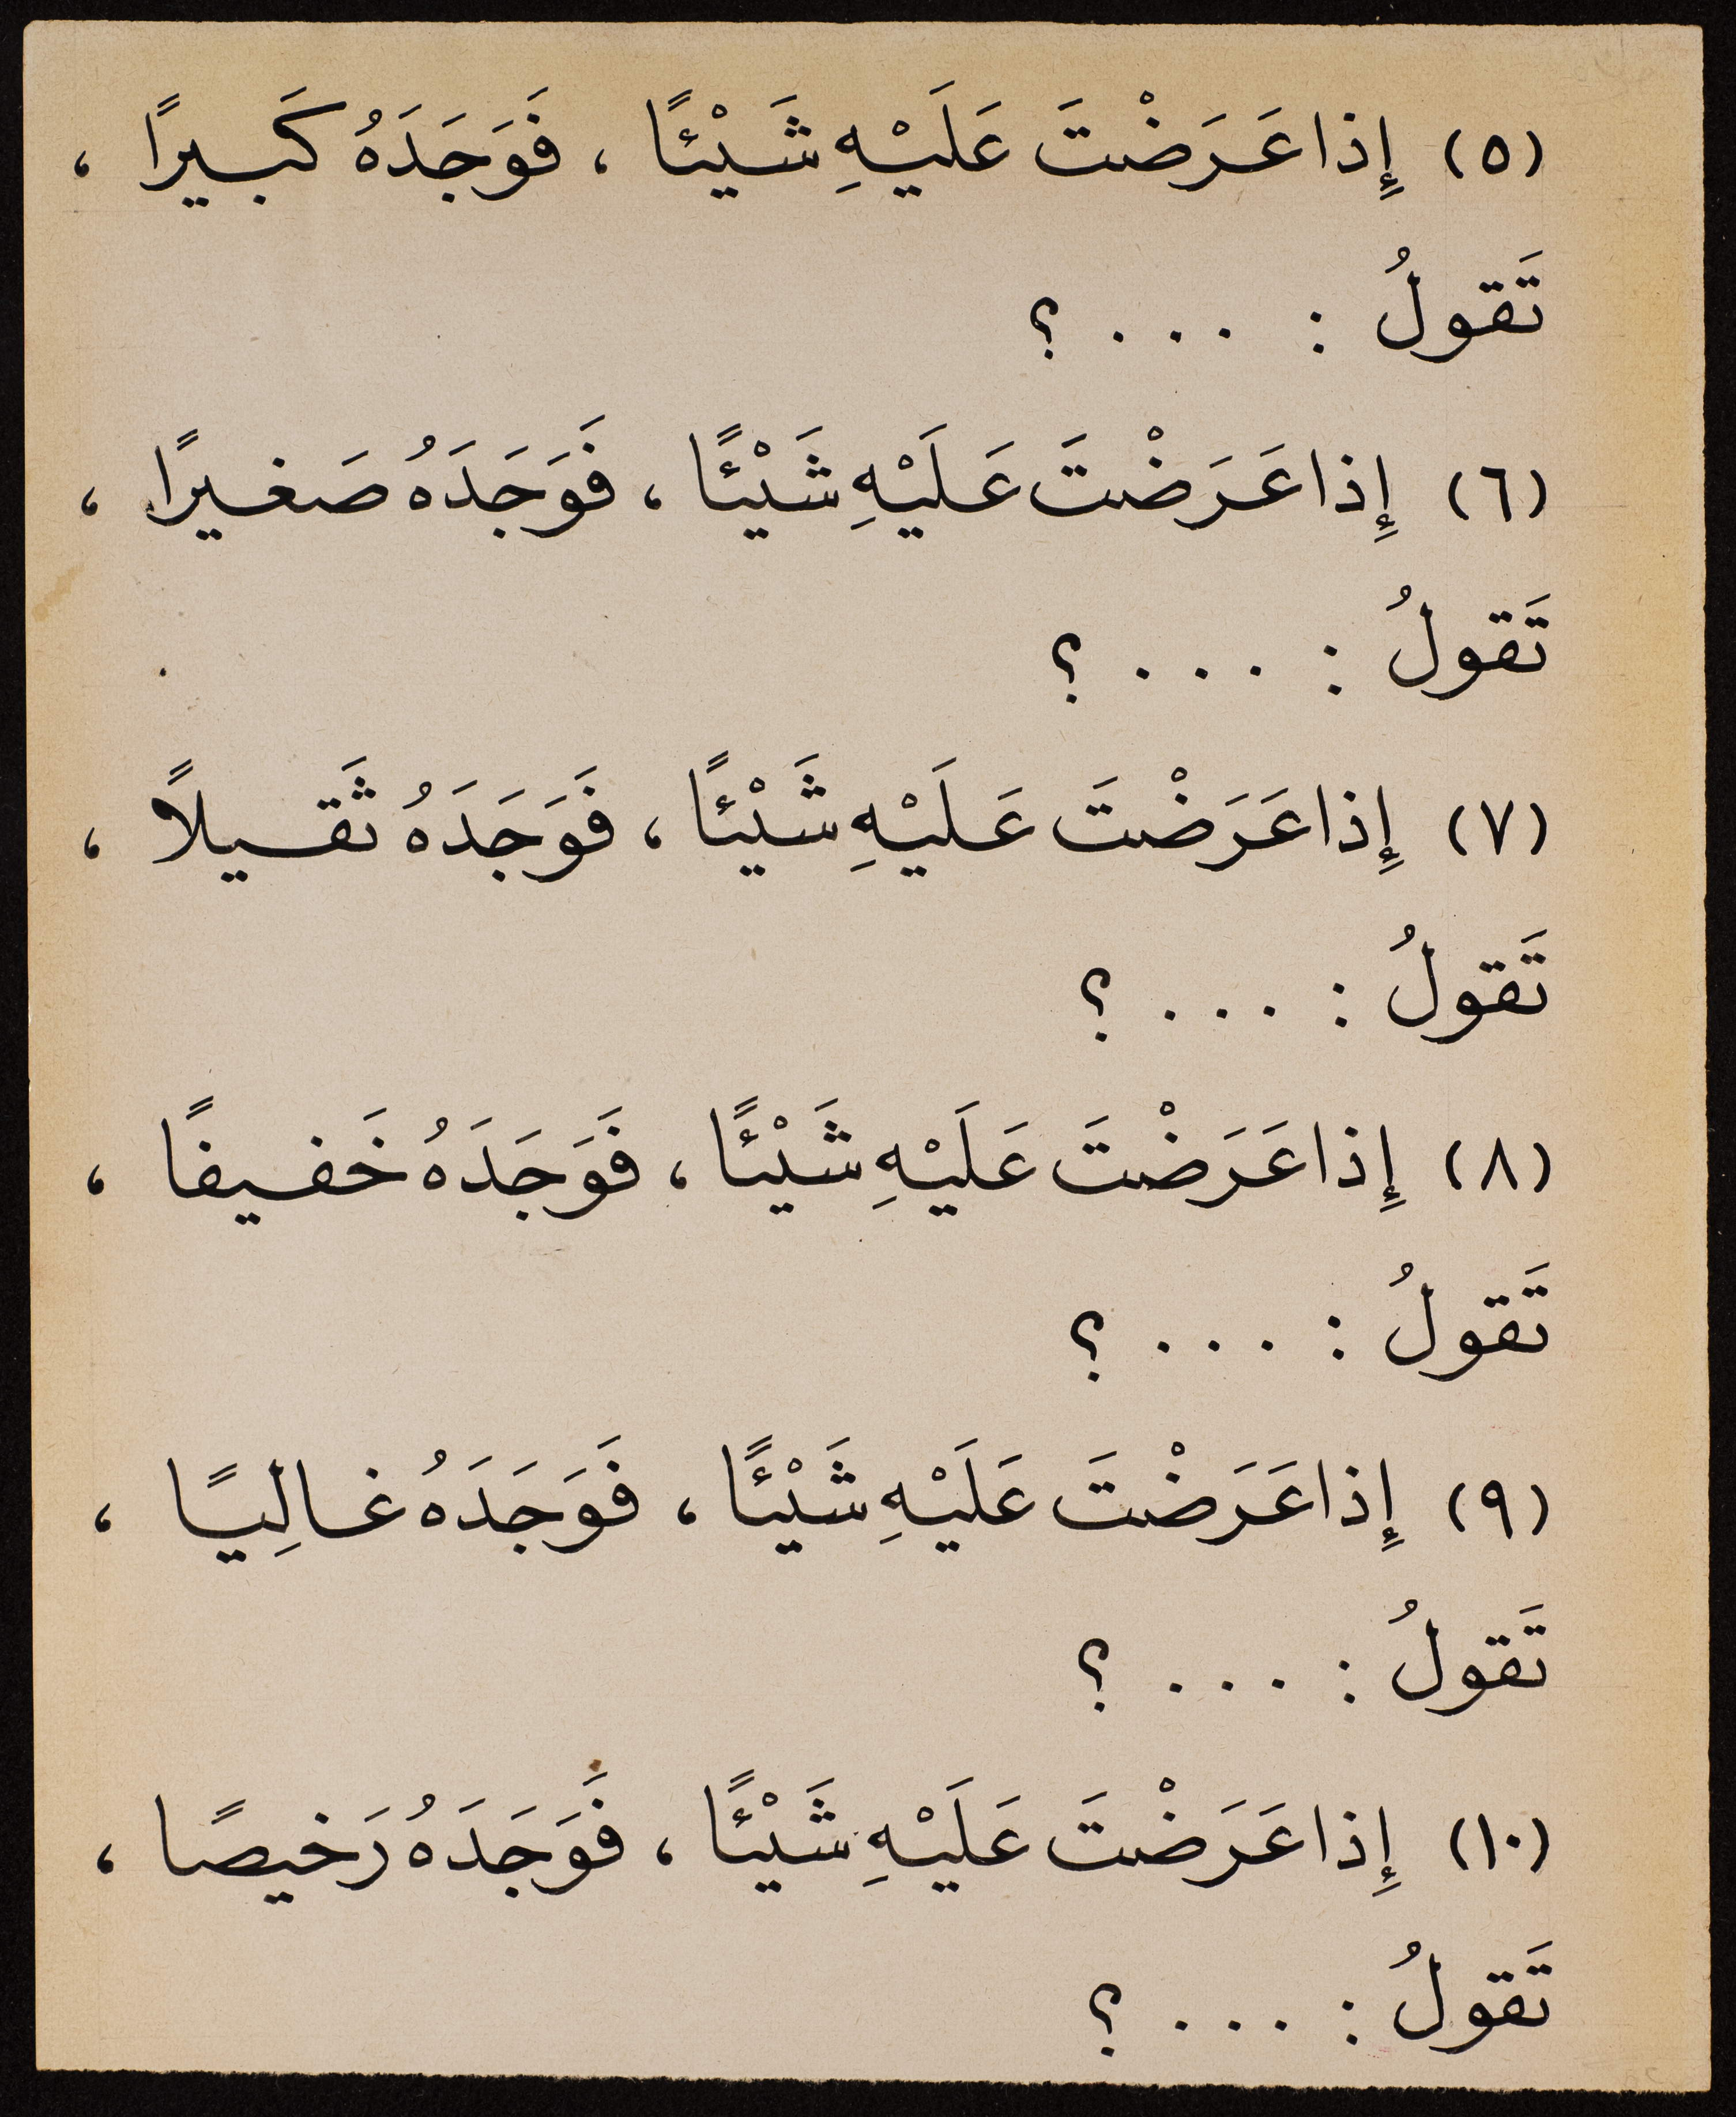 (٥) إِذا عَرَضْتَ عَلَيْهِ شَيْئًا ، فَوَجَدَهُ كَبيرًا ،
تَقولُ : . . . ؟
(٦) إِذا عَرَضْتَ عَلَيْهِ شَيْئًا ، فَوَجَدَهُ صَغيرًا ،
تَقولُ : . . . ؟
(٧) إِذا عَرَضْتَ عَلَيْهِ شَيْئًا ، فَوَجَدَهُ ثَقيلاً ،
تَقولُ : . . . ؟
(٨) إِذا عَرَضْتَ عَلَيْهِ شَيْئًا ، فَوَجَدَهُ خَفيفًا ،
تَقولُ : . . . ؟
(٩) إِذا عَرَضْتَ عَلَيْهِ شَيْئًا ، فَوَجَدَهُ غالِيًا ،
تَقولُ : . . . ؟
(١٠) إِذا عَرَضْتَ عَلَيْهِ شَيْئًا ، فَوَجَدَهُ رَخيصًا ،
تَقولُ : . . . ؟